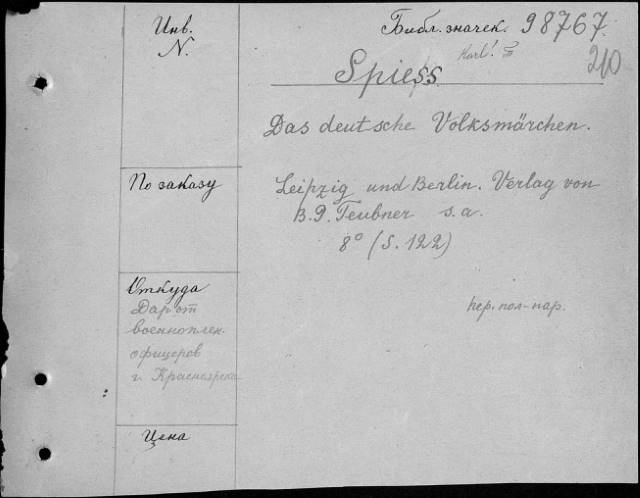 Инв.
N.
Библ. значек. 98767.
Karl!
210
Spiess.
Das deutsche Volksmärchen.
По заказу
Leipzig und Berlin. Verlag von
B. G. Teubner s. a.
8° (S. 122)
Откуда
Дар от
военноплен.
офицеров
г. Красноярска
пер. пол-пар.
Цена